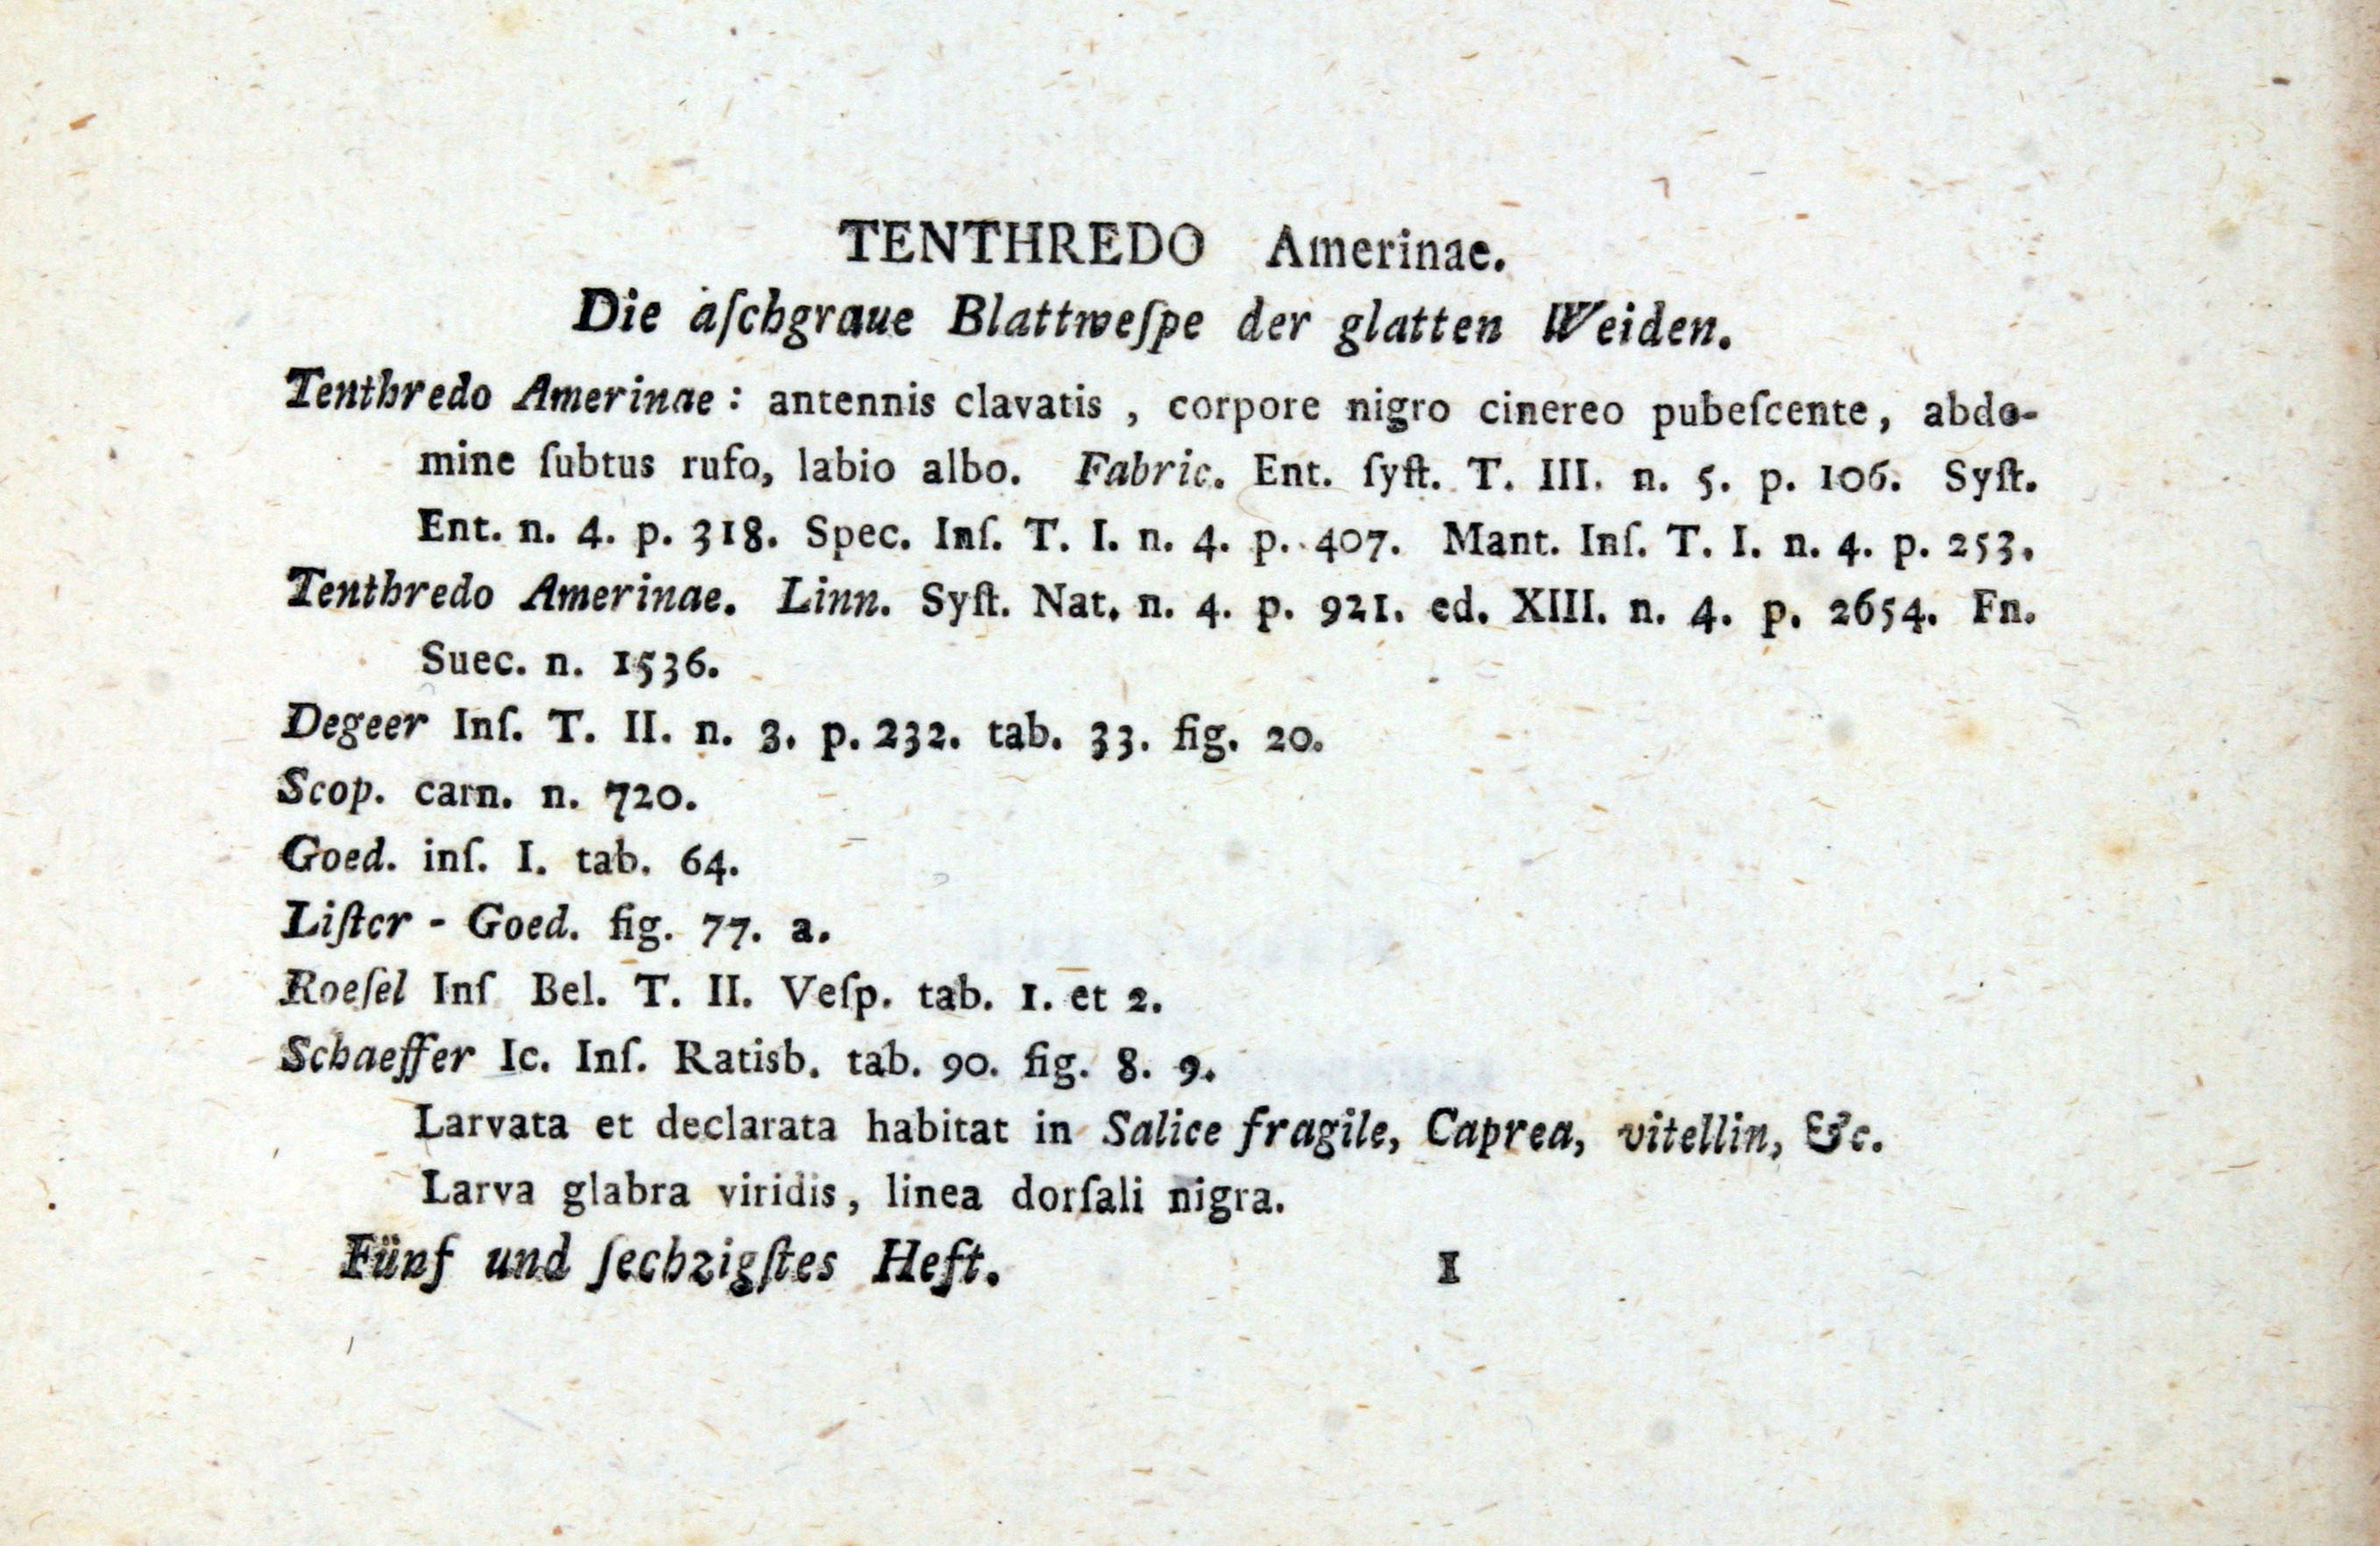 TENTHREDO Amerinae.
Die aſchgraue Blattweſpe der glatten Weiden.
Tenthredo Amerinae: antennis clavatis, corpore nigro cinereo pubeſcente, abdo-
mine ſubtus rufo, labio albo. Fabric. Ent. ſyſt. T. III. n. 5. p. 106. Syſt.
Ent. n. 4. p. 318. Spec. Inſ. T. I. n. 4. p. 407. Mant. Inſ. T. I. n. 4. p. 253.
Tenthredo Amerinae. Linn. Syſt. Nat. n. 4. p. 921. ed. XIII. n. 4. p. 2654. Fn.
Suec. n. 1536.
Degeer Inſ. T. II. n. 3. p. 232. tab. 33. fig. 20.
Scop. carn. n. 720.
Goed. inſ. I. tab. 64.
Liſter - Goed. fig. 77. a.
Roeſel Inſ Bel. T. II. Veſp. tab. 1. et 2.
Schaeffer Ic. Inſ. Ratisb. tab. 90. fig. 8. 9.
Larvata et declarata habitat in Salice fragile, Caprea, vitellin, &c.
Larva glabra viridis, linea dorſali nigra.
Fünf und ſechzigſtes Heft. 1